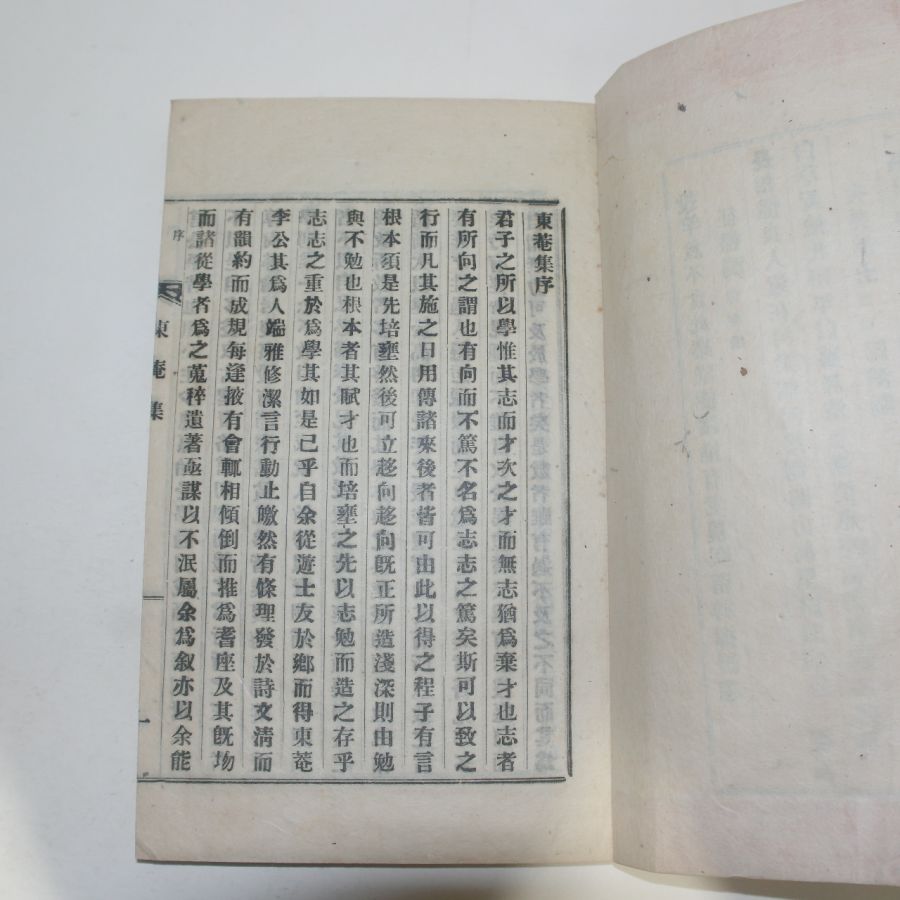 東菴集序
君子之所以學惟其志而才次之才而無志猶爲棄才也志者
有所向之謂也有向而不篤不名爲志志之篤矣斯可以致之
行而凡其施之日用傳諸來後者皆可由此以得之程子有言
根本須是先培壅然後可立趍向趍向旣正所造淺深則由勉
與不勉也根本者其賦才也而培壅之先以志勉而造之存乎
志志之重於爲學其如是已乎自余從遊士友於鄕而得東菴
李公其爲人端雅修潔言行動止皦然有條理發於詩文淸而
有韻約而成規每逢掖有會輒相傾倒而推爲耆座及其旣圽
而諸從學者爲之蒐稡遺著亟謀以不泯屬余爲叙亦以余能
序
東菴集
一